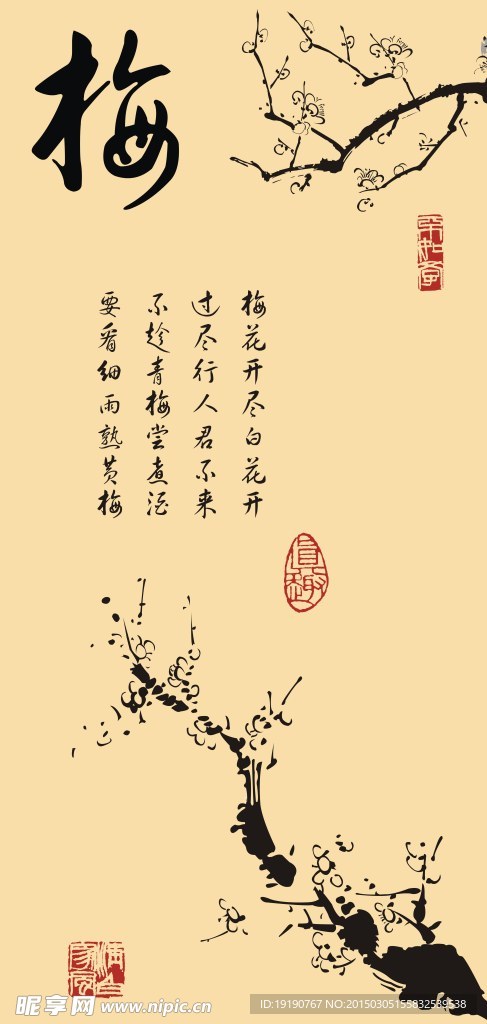 梅
梅花开尽白花开
过尽行人君不来
不趁青梅尝煮酒
要看细雨熟黄梅
真趣
昵享网 www.nipic.cn
ID:19190767 NO:20150305155832539538